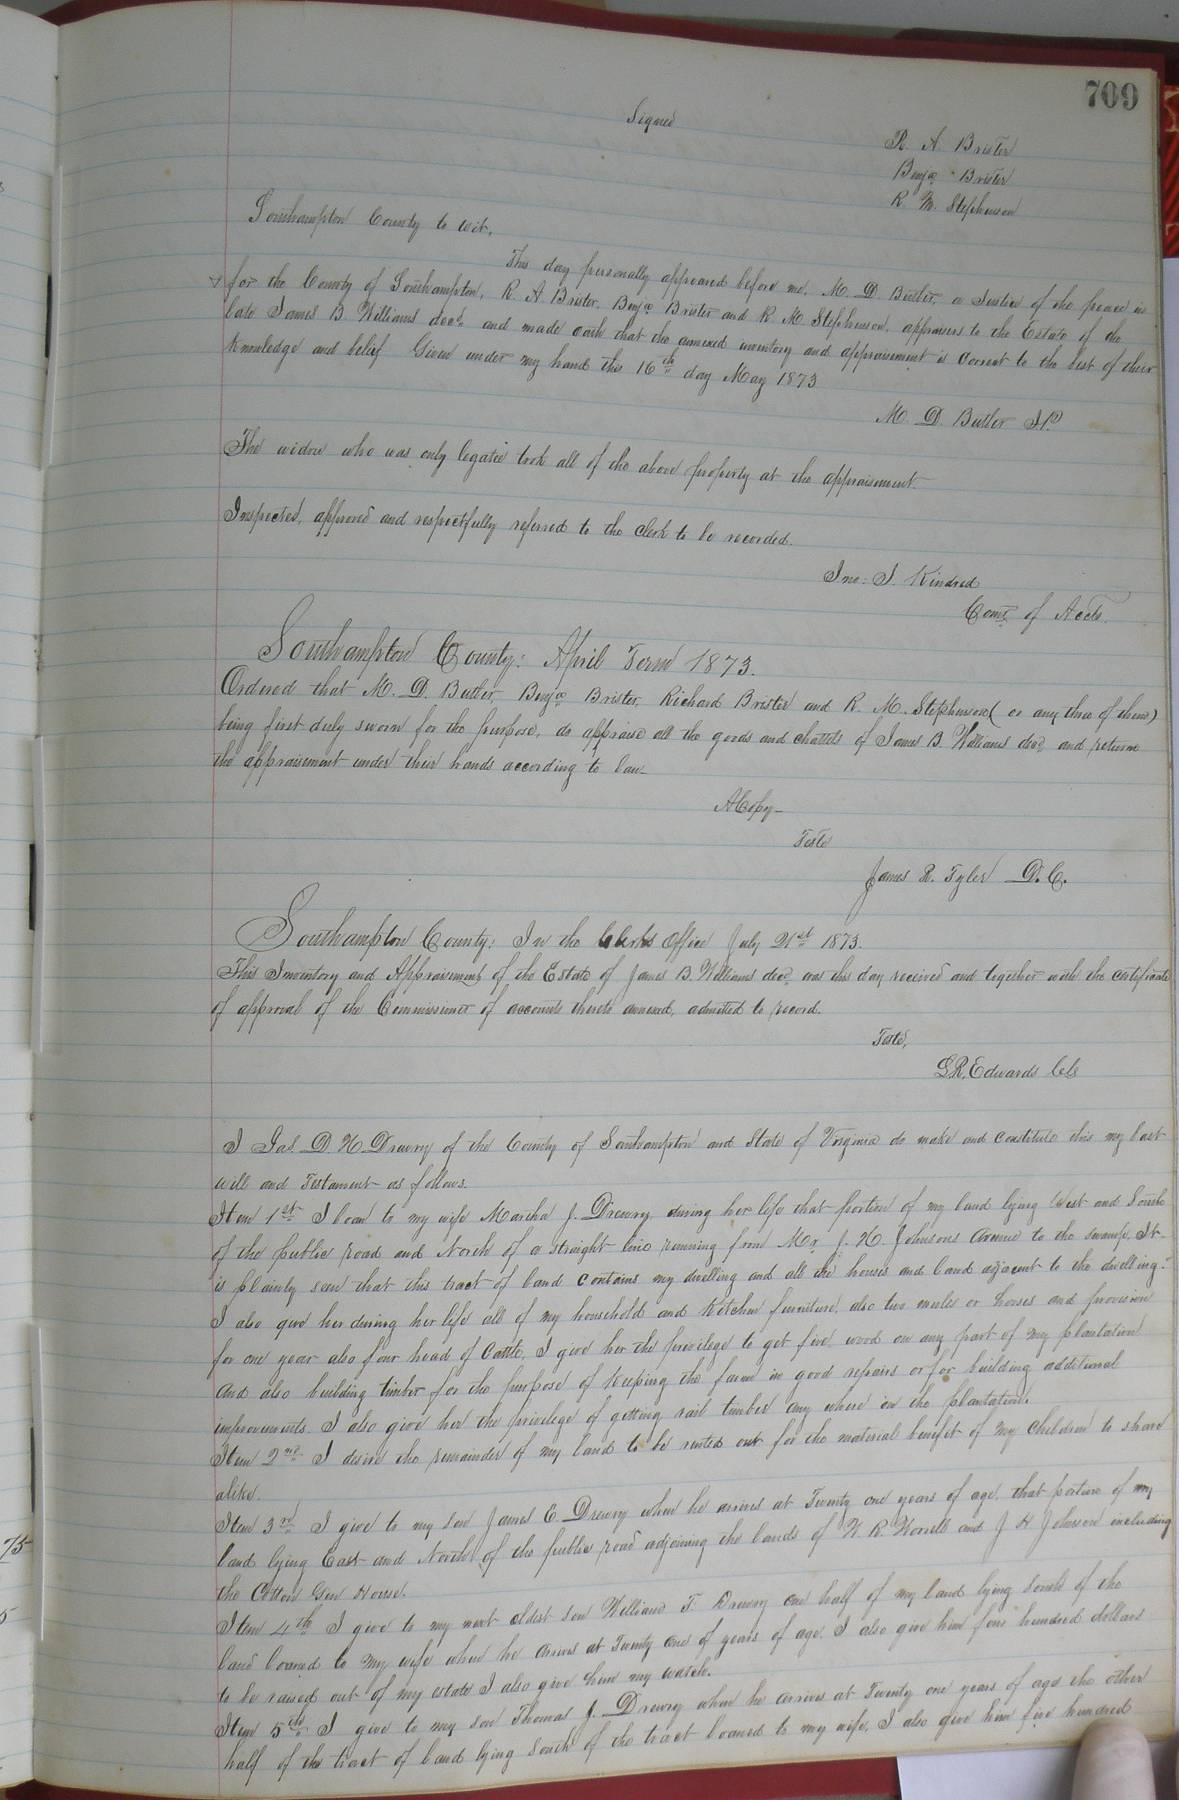 709
Signed
R. A. Brister
Benja Brister
R. M. Stephenson
Southampton County to wit,
This day personally appeared before me, M. D. Butler, a Justice of the peace in
for the County of Southampton, R. A. Brister, Benja Brister and R. M. Stephenson, appraisers to the Estate of the
late James B. Williams decd. and made oath that the annexed inventory and appraisement is correct to the best of their
knowledge and belief Given under my hand this 16th day May 1873
M. D. Butler J.P.
The widow who was only legatee took all of the above property at the appraisement.
Inspected, approved and respectfully referred to the clerk to be recorded.
Jno: J. Kindred
Comr. of Accts.
Southampton County: April Term 1873.
Ordered that M. D. Butler, Benja Brister, Richard Brister and R. M. Stephenson (or any three of them)
being first duly sworn for the purpose, do appraise all the goods and chattels of James B. Williams decd. and return
the appraisement under their hands according to law
A Copy-
Teste
James R. Tyler D. C.
Southampton County: In the Clerks Office July 21st 1873.
This Inventory and Appraisement of the Estate of James B. Williams decd. was this day received and together with the certificate
of approval of the Commissioner of accounts thereto annexed, admitted to record.
Teste,
L. R. Edwards Clk
I Jas. D. H. Drewry of the County of Southampton and State of Virginia do make and constitute this my last
will and Testament as follows.
Item 1st I loan to my wife Martha J. Drewry, during her life that portion of my land lying West and South
of the public road and North of a straight line running from Mr J. H. Johnsons Avenue to the swamp. It
is plainly seen that this tract of land contains my dwelling and all the houses and land adjacent to the dwelling.
I also give her during her life all of my household and Kitchen furniture, also two mules or horses and provision
for one year also four head of Cattle. I give her the privilege to get fire wood on any part of my plantation
And also building timber for the purpose of keeping the farm in good repairs or for building additional
improvements I also give her the privilege of getting rail timber any where on the plantation.
Item 2nd I desire the remainder of my lands to be rented out for the material benefit of my children to share
alike.
Item 3rd I give to my son James E. Drewry when he arrives at Twenty one years of age, that portion of my
land lying East and North of the public road adjoining the lands of W. R. Worrell and J H Johnson including
the Cotton Gin House.
Item 4th I give to my next oldest son William T. Drewry one half of my land lying South of the
land loaned to my wife when he arrives at Twenty one of years of age. I also give him five hundred dollars
to be raised out of my estate I also give him my watch.
Item 5th I give to my son Thomas J. Drewry when he arrives at Twenty one years of age the other
half of the tract of land lying South of the tract loaned to my wife, I also give him five hundred
75
5